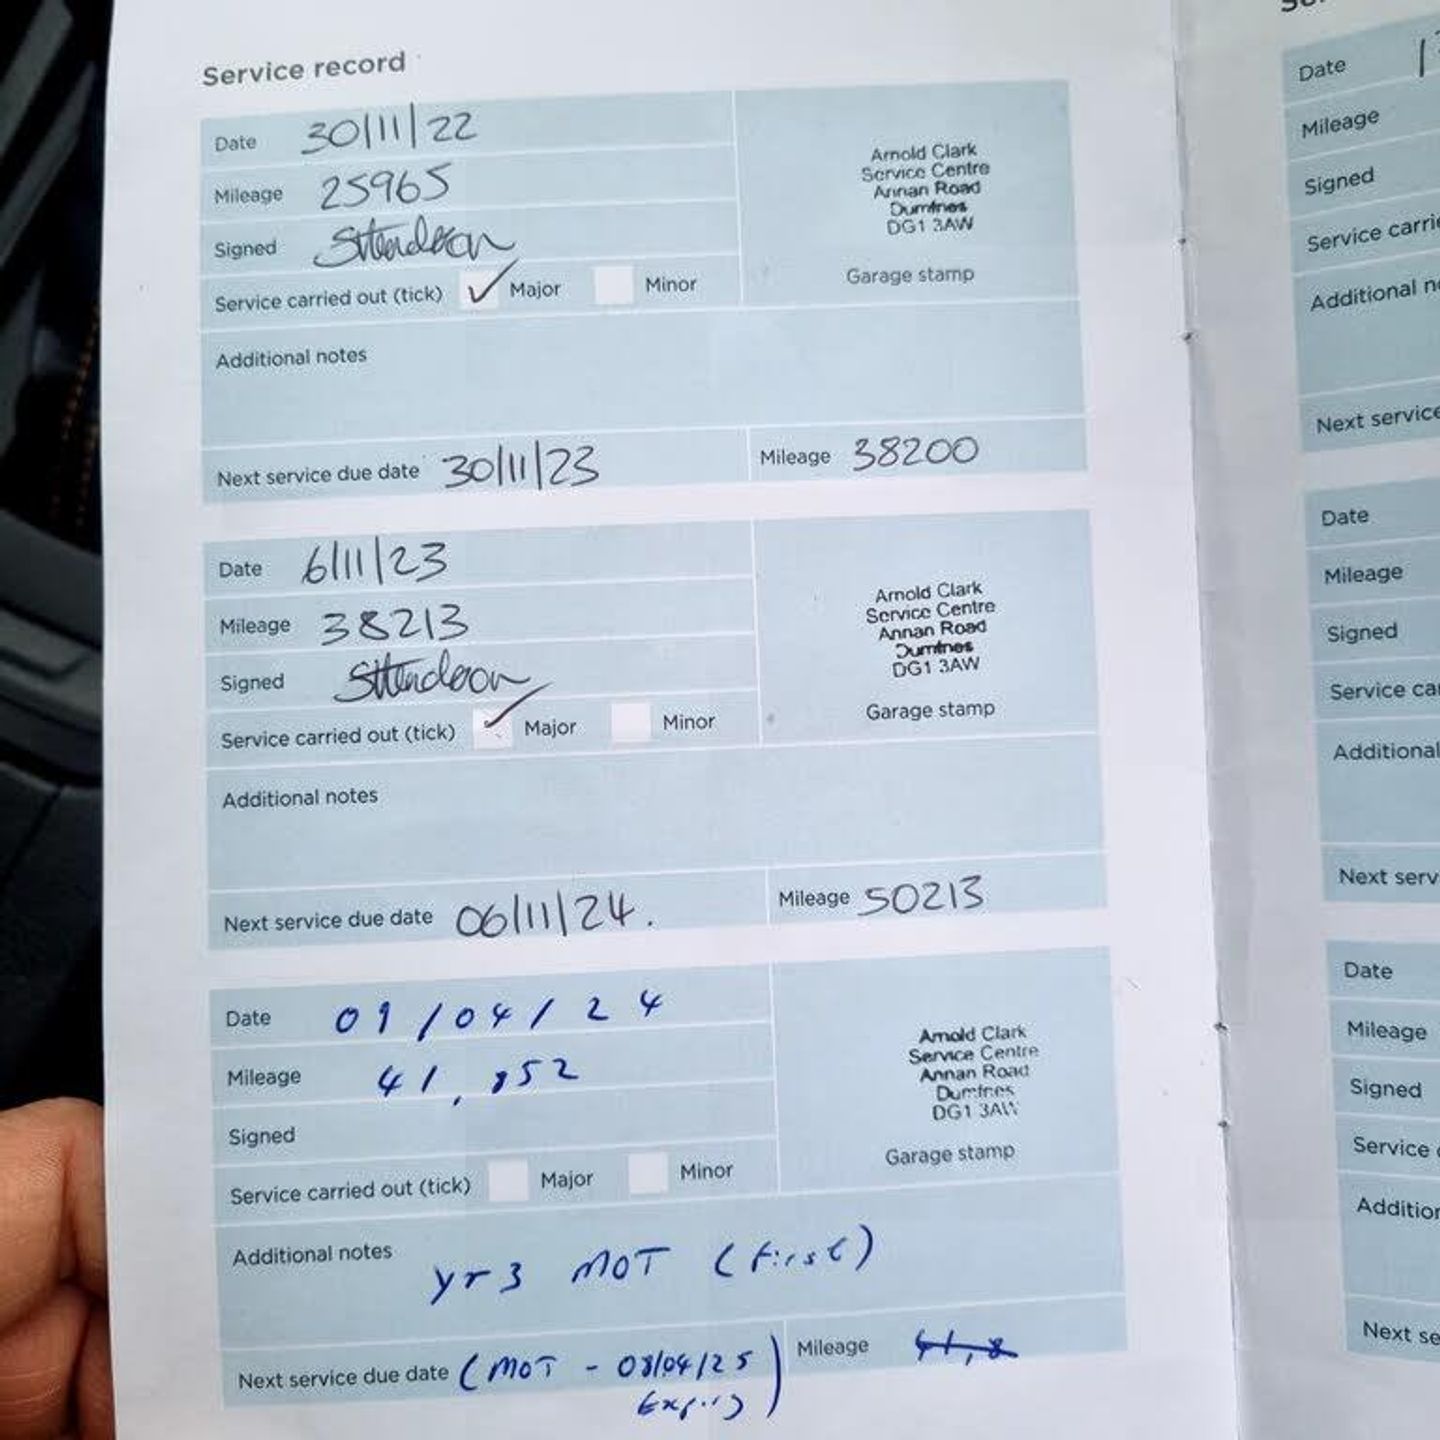 Service record
Date 30/11/22
Mileage 25965
Signed
Service carried out (tick) ✓ Major Minor
Arnold Clark
Service Centre
Annan Road
Dumfries
DG1 3AW
Garage stamp
Additional notes
Next service due date 30/11/23 Mileage 38200
Date 6/11/23
Mileage 38213
Signed
Service carried out (tick) ✓ Major Minor
Arnold Clark
Service Centre
Annan Road
Dumfries
DG1 3AW
Garage stamp
Additional notes
Next service due date 06/11/24. Mileage 50213
Date 09/04/24
Mileage 41,852
Signed
Service carried out (tick) Major Minor
Arnold Clark
Service Centre
Annan Road
Dumfries
DG1 3AW
Garage stamp
Additional notes yr 3 MOT (first)
Next service due date (MOT - 08/04/25 Mileage 41,8
Expiry)
Date
Mileage
Signed
Service
Additional
Next service
Date
Mileage
Signed
Service
Additional
Next
Date
Mileage
Signed
Service
Next